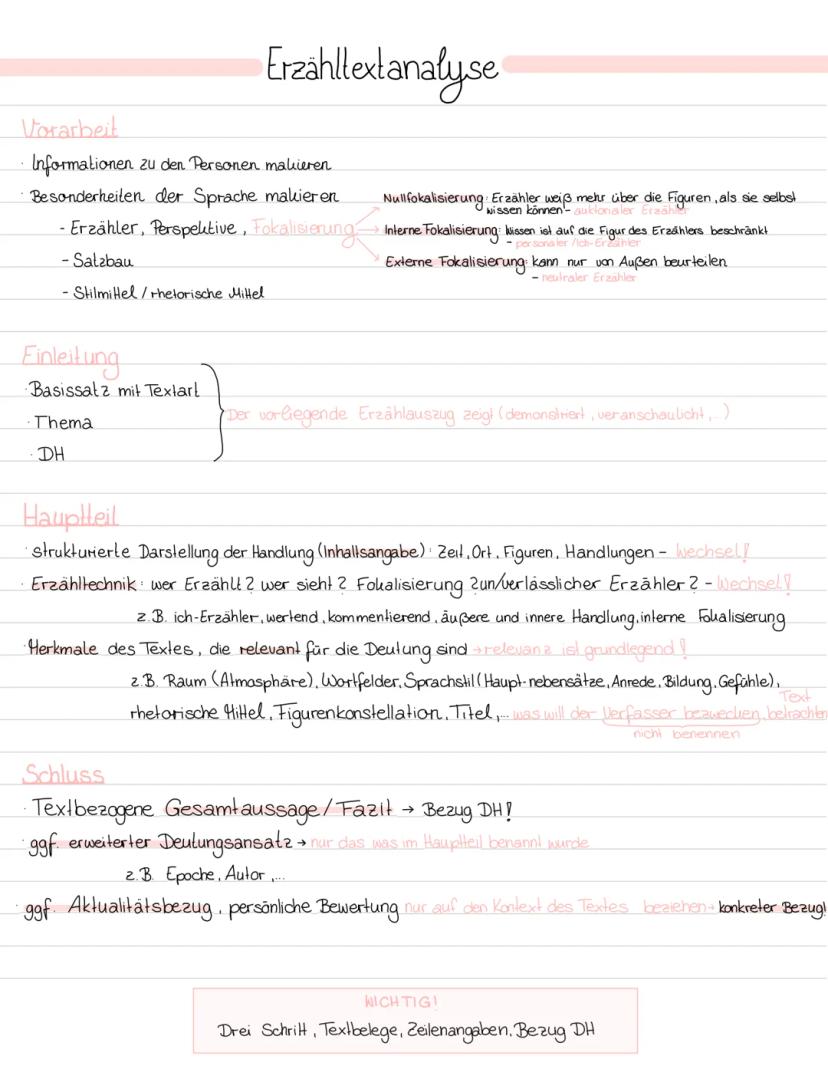 Erzähltextanalyse
Vorarbeit
· Informationen zu den Personen makieren
· Besonderheiten der Sprache makieren
- Erzähler, Perspektive, Fokalisierung
Nullfokalisierung: Erzähler weiß mehr über die Figuren, als sie selbst
wissen können - auktorialer Erzähler
→ Interne Fokalisierung: Wissen ist auf die Figur des Erzählers beschränkt
- personaler / Ich-Erzähler
Externe Fokalisierung: kann nur von Außen beurteilen
- neutraler Erzähler
- Satzbau
- Stilmittel / rhetorische Mittel
Einleitung
· Basissatz mit Textart
· Thema
· DH
Der vorliegende Erzählauszug zeigt (demonstriert, veranschaulicht,...)
Hauptteil
· strukturierte Darstellung der Handlung (Inhaltsangabe): Zeit, Ort, Figuren, Handlungen - Wechsel!
· Erzähltechnik: wer Erzählt? wer sieht? Fokalisierung? un/verlässlicher Erzähler? - Wechsel!
z.B. ich-Erzähler, wertend, kommentierend, äußere und innere Handlung, interne Fokalisierung
· Merkmale des Textes, die relevant für die Deutung sind → relevanz ist grundlegend!
z.B. Raum (Atmosphäre), Wortfelder, Sprachstil (Haupt-nebensätze, Anrede, Bildung, Gefühle),
rhetorische Mittel, Figurenkonstellation, Titel,... was will der Verfasser bezwecken, Text betrachten
nicht benennen
Schluss
· Textbezogene Gesamtaussage / Fazit → Bezug DH!
· ggf. erweiterter Deutungsansatz → nur das was im Hauptteil benannt wurde
z.B. Epoche, Autor,...
· ggf. Aktualitätsbezug, persönliche Bewertung nur auf den Kontext des Textes beziehen → konkreter Bezug!
WICHTIG!
Drei Schritt, Textbelege, Zeilenangaben, Bezug DH